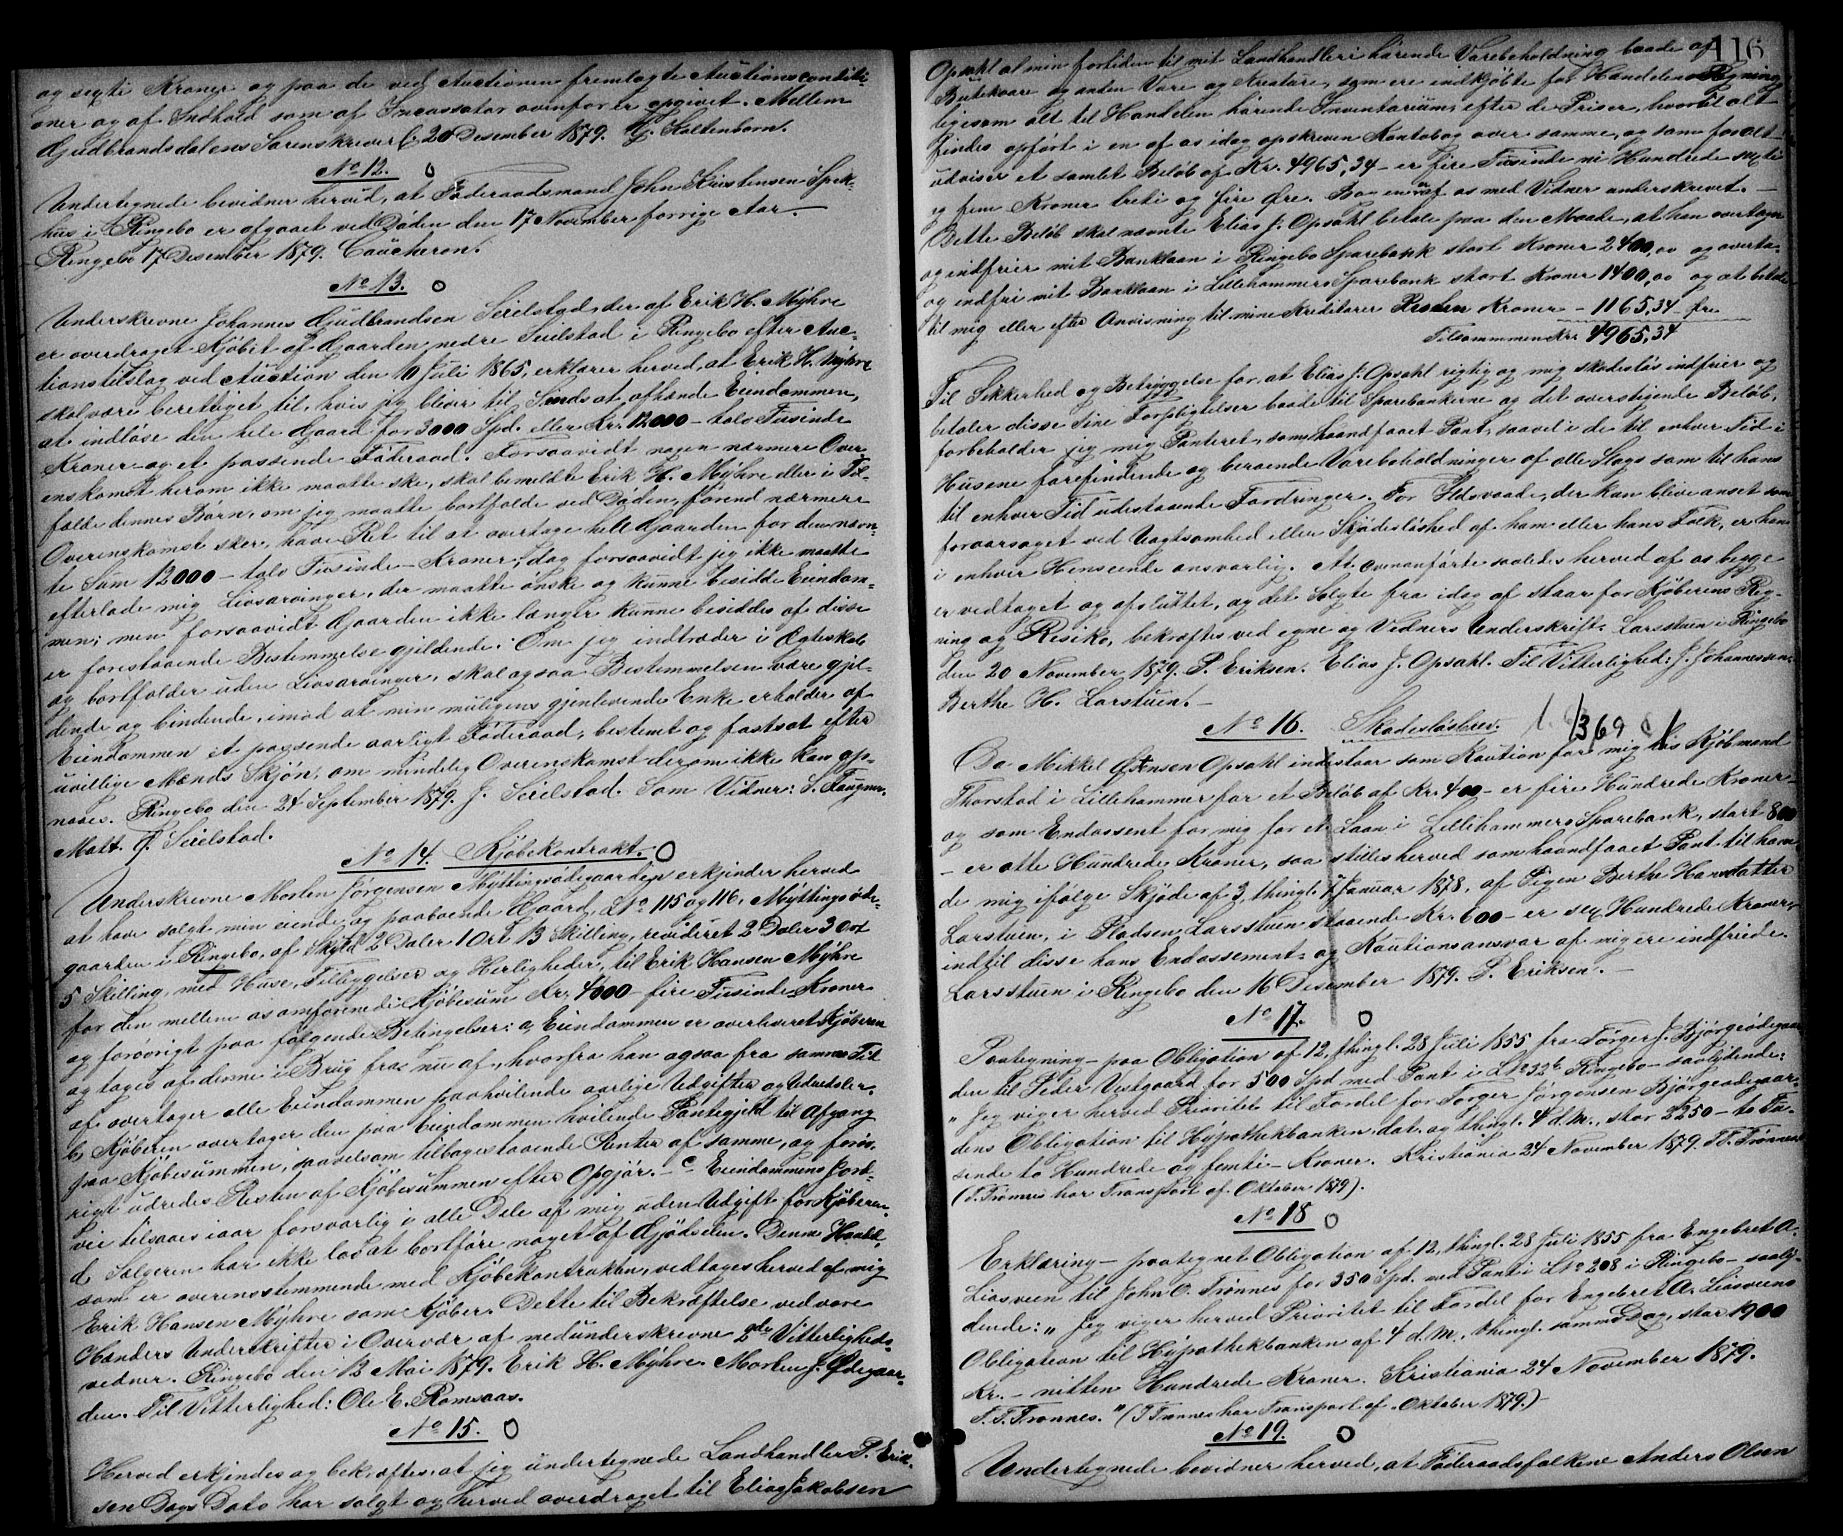 og sexti Kroner og paa de ved Auctionen fremlagte Auctionsconditi-
oner og af Indhold som af Incassator ovenfor er opgivet. Mellem
Gudbrandsdalens Sorenskriveri, 20 Desember 1879. G. Kaltenborn.
No 12. O
Undertegnede bevidner herved, at Föderaadsmand John Kristensen Spek-
hus i Ringebo er afgaaet ved Döden den 17 November forrige Aar.-
Ringebo 17 Desember 1879. Caucheron.
No 13. O
Underskrevne Johannes Gudbrandsen Seielstad, der af Erik H. Myhre
er overdraget Kjöbet af Gaarden nedre Seielstad i Ringebo efter Auc-
tionstilslag ved Auction den 10 Juli 1865, erklærer herved, at Erik H. Myhre
skal være berettiget til, hvis jeg bliver til Sinds at afhænde Eiendommen,
at indlöse den hele Gaard for 3000 Spd. eller Kr. 12000 - tolv Tusinde
Kroner - og et passende Föderaad. Forsaavidt nogen nærmere Over-
enskomst herom ikke maatte ske, skal bemeldte Erik H. Myhre eller i Til-
fælde dennes Börn, om jeg maatte bortfalde ved Döden, förend nærmere
Overenskomst sker, have Ret til at overtage hele Gaarden for den nævn-
te Sum 12000 - tolv Tusinde - Kroner; dog forsaavidt jeg ikke maatte
efterlade mig Livsarvinger, der maatte önske og kunne besidde Eiendom-
men; men forsaavidt Gaarden ikke længer kunne besiddes af disse
er forestaaende Bestemmelse gjeldende. Om jeg indtræder i Ægteskab
og bortfalder uden Livsarvinger, skal ogsaa Bestemmelsen være gjel-
dende og bindende, imod at min muligens gjenlevende Enke erholder af
Eiendommen et passende aarligt Föderaad, bestemt og fastsat efter
uvillige Mænds Skjön, om mindelig Overenskomst derom ikke kan op-
naaes. Ringebo den 24 September 1879. J. Seielstad. Som Vidner: S. Fougner.
Matt. J. Seielstad.
No 14. Kjöbekontrakt. - O
Underskrevne Morten Jörgensen Myttingsödegaarden erkjender herved
at have solgt min eiende og paaboende Gaard, LNo 115 og 116, Myttingsöde-
gaarden i Ringebo, af Skyld 2 Daler 1 Ort 13 Skilling, revideret 2 Daler 3 Ort
5 Skilling, med Huse, Tilliggelser og Herligheder, til Erik Hansen Myhre
for den mellem os omforenede Kjöbesum Kr. 4000 - fire Tusinde - Kroner
og forövrigt paa fölgende Betingelser: a, Eiendommen er overleveret Kjöberen
og tages af denne i Brug fra nu af, hvorfra han ogsaa fra samme Tid
af overtager alle Eiendommen paahvilende aarlige Udgifter og Udredsler.
b, Kjöberen overtager den paa Eiendommen hvilende Pantegjeld til Afgang
paa Kjöbesummen, saavelsom tilbagestaaende Renter af samme, og foröv-
rigt udredes Resten af Kjöbesummen efter Opgjör. - c, Eiendommens Jord-
vei tilsaaes iaar forsvarlig i alle Dele af mig uden Udgift for Kjöberen.
d, Sælgeren har ikke lov at bortföre noget af Gjödselen. Denne Handel,
som er overensstemmende med Kjöbekontrakten, vedtages herved af mig
Erik Hansen Myhre som Kjöber. Dette til Bekræftelse ved vore
Hænders Underskrifter i Overvær af medunderskrevne 2de Vitterligheds-
vedner. Ringebo den 12 Mai 1879. Erik H. Myhre. Morten J. Ödegaar-
den. Til Vitterlighed: Ole E. Romsaas.
No 15. O
Herved erkjendes og bekræftes, at jeg undertegnede Landhandler P. Erik-
sen Dags Dato har solgt og herved overdraget til Elias Jakobsen
116
Opsahl al min fortiden til mit Landhandleri hörende Varebeholdning baade af
Butikvare og anden Vare og Kreature, som ere indkjöbte for Handelens Regning
ligesom alt til Handelen hörende Inventarium, efter de Priser, hvortil alt
findes opfört i en af os idag opskreven Kontobog over samme, og som for alt
udviser et samlet Belöb af Kr. 4965,34 - er fire Tusinde ni Hundrede sexti
og fem Kroner treti og fire Öre. Bogen er af os med Vidner underskrevet. -
Dette Belöb skal nævnte Elias J. Opsahl betale paa den Maade, at han overtager
og indfrier mit Banklaan i Ringebo Sparebank stort Kroner 2400,00 og overta-
og indfri mit Banklaan i Lillehammers Sparebank stort Kroner 1400,00 og at betale
til mig eller efter Anvisning til mine Kreditorer Resten Kroner - 1165,34 öre
Tilsammen Kr. 4965,34
Til Sikkerhed og Betryggelse for, at Elias J. Opsahl rigtig og mig skadeslös indfrier og
betaler disse sine Forpligtelser baade til Sparebankerne og det overstigende Belöb,
forbeholder jeg mig Panteret, som haandfaaet Pant, saavel i de til enhver Tid i
Husene forefindende og beroende Varebeholdninger af alle Slags som til hans
til enhver Tid udestaaende Fordringer. For Ildsvaade, der kan blive anset som
foraarsaget ved Uagtsomhed eller Skjödeslöshed af ham eller hans Folk, er han
i enhver Henseende ansvarlig. At ovenanförte saaledes herved af os begge
er vedtaget og afsluttet, og det Solgte fra idag af staar for Kjöberens Reg-
ning og Resiko, bekræftes ved egne og Vidners Underskrift. Larsstuen i Ringebo
den 20 November 1879. P. Eriksen. Elias J. Opsahl. Til Vitterlighed: J. Johannessen.
Berthe H. Larstuen. -
No 16. Skadeslösbrev. 1369
Da Mikkel Östensen Opsahl indestaar som Kaution for mig hos Kjöbmand
Thorstad i Lillehammer for et Belöb af Kr. 400 - er fire Hundrede Kroner -
og som Endossent for mig for et Laan i Lillehammers Sparebank, stort 800
- er otte Hundrede Kroner, saa stilles herved som haandfaaet Pant til ham
de mig ifölge Skjöde af 3, thingl. 7 Januar 1878, af Pigen Berthe Hansdatter
Larstuen, i Pladsen Larsstuen staaende Kr. 600 - er sex Hundrede Kroner,
indtil disse hans Endossement- og Kautionsansvar af mig ere indfriede.
Larsstuen i Ringebo den 16 Desember 1879. P. Eriksen. -
No 17. O
Paategning - paa Obligation af 12, thingl. 28 Juli 1855 fra Törger J. Björgeödegaar-
den til Peder Vestgaard for 500 Spd. med Pant i LNo 32b Ringebo - saalydende:
"Jeg viger herved Prioritet til Fordel for Torger Jörgensen Björgeodegaar-
dens Obligation til Hypothekbanken, dat. og thingl. 4 d. M., stor 2250 - to Tu-
sende to Hundrede og femti - Kroner. Kristiania 24 November 1879. T. T. Trönnes
(T. Trönnes har Transport af Oktober 1879).
No 18 O
Erklæring - paategnet Obligation af 12, thingl. 28 Juli 1855 fra Engebret A.
Liosveen til John O. Trönnes for 350 Spd. med Pant i LNo 208 i Ringebo - saaly-
dende: "Jeg viger herved Prioritet til Fordel for Engebret A. Liosveens
Obligation til Hypothekbanken af 4 d. M., thingl. samme Dag, stor 1900
Kr. - nitten Hundrede Kroner. Kristiania 24 November 1879.
T. T. Trönnes." (T. Trönnes har Transport af Oktober 1879.) -
No 19. O
Undertegnede bevidner herved, at Föderaadsfolkene Anders Olsen